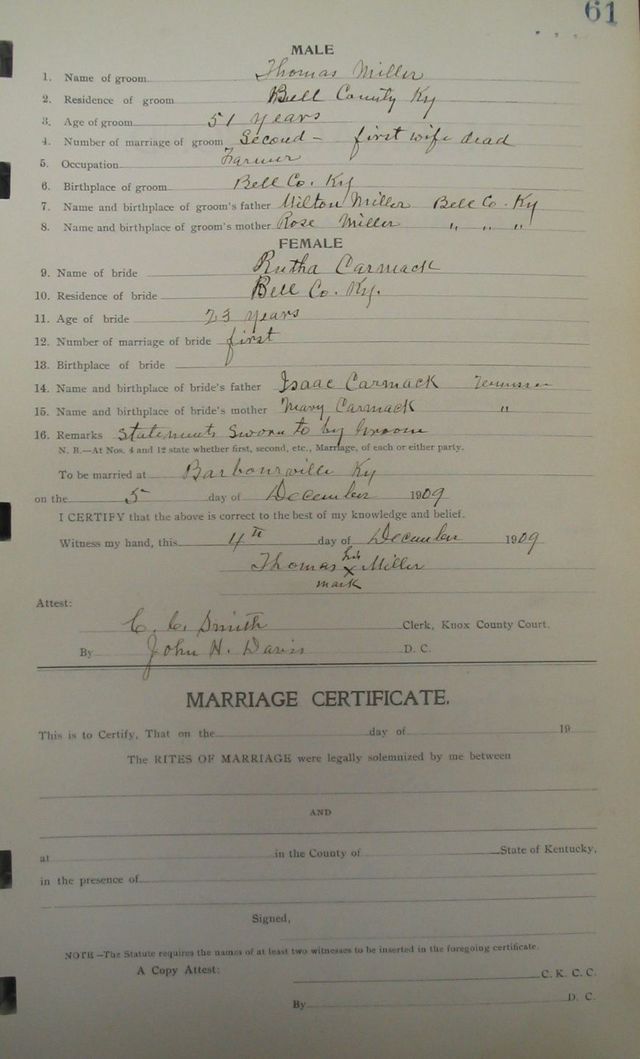 61
MALE
1. Name of groom Thomas Miller
2. Residence of groom Bell County Ky
3. Age of groom 51 years
4. Number of marriage of groom Second - first wife dead
5. Occupation Farmer
6. Birthplace of groom Bell Co. Ky
7. Name and birthplace of groom's father Milton Miller Bell Co. Ky
8. Name and birthplace of groom's mother Rose Miller " " "
FEMALE
9. Name of bride Rutha Carmack
10. Residence of bride Bell Co. Ky.
11. Age of bride 23 years
12. Number of marriage of bride first
13. Birthplace of bride
14. Name and birthplace of bride's father Isaac Carmack Tennessee
15. Name and birthplace of bride's mother Mary Carmack "
16. Remarks Statements Sworn to by Groom
N. B.—At Nos. 4 and 12 state whether first, second, etc., Marriage, of each or either party.
To be married at Barbourville Ky
on the 5 day of December 1909
I CERTIFY that the above is correct to the best of my knowledge and belief.
Witness my hand, this 4th day of December 1909
Thomas his x Miller
mark
Attest:
C. C. Smith Clerk, Knox County Court.
By John H. Davis D. C.
MARRIAGE CERTIFICATE.
This is to Certify, That on the day of 19
The RITES OF MARRIAGE were legally solemnized by me between
AND
at in the County of State of Kentucky,
in the presence of
Signed,
NOTE—The Statute requires the names of at least two witnesses to be inserted in the foregoing certificate.
A Copy Attest: C. K. C. C.
By D. C.